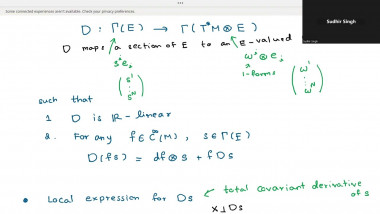 Some connected experiences aren't available. Check your privacy preferences.
Sudhir Singh
D : Γ(E) → Γ(T*M ⊗ E)
D maps a section of E to an E-valued
sⁱeᵢ
ωⁱ ⊗ eᵢ
1-forms
(s¹ ⋮ sᴺ)
(ω¹ ⋮ ωᴺ)
such that
1 D is ℝ-linear
2. For any f ∈ C∞(M), s ∈ Γ(E)
D(fs) = df ⊗ s + f Ds
• Local expression for Ds
total covariant derivative
of s
X⌟Ds